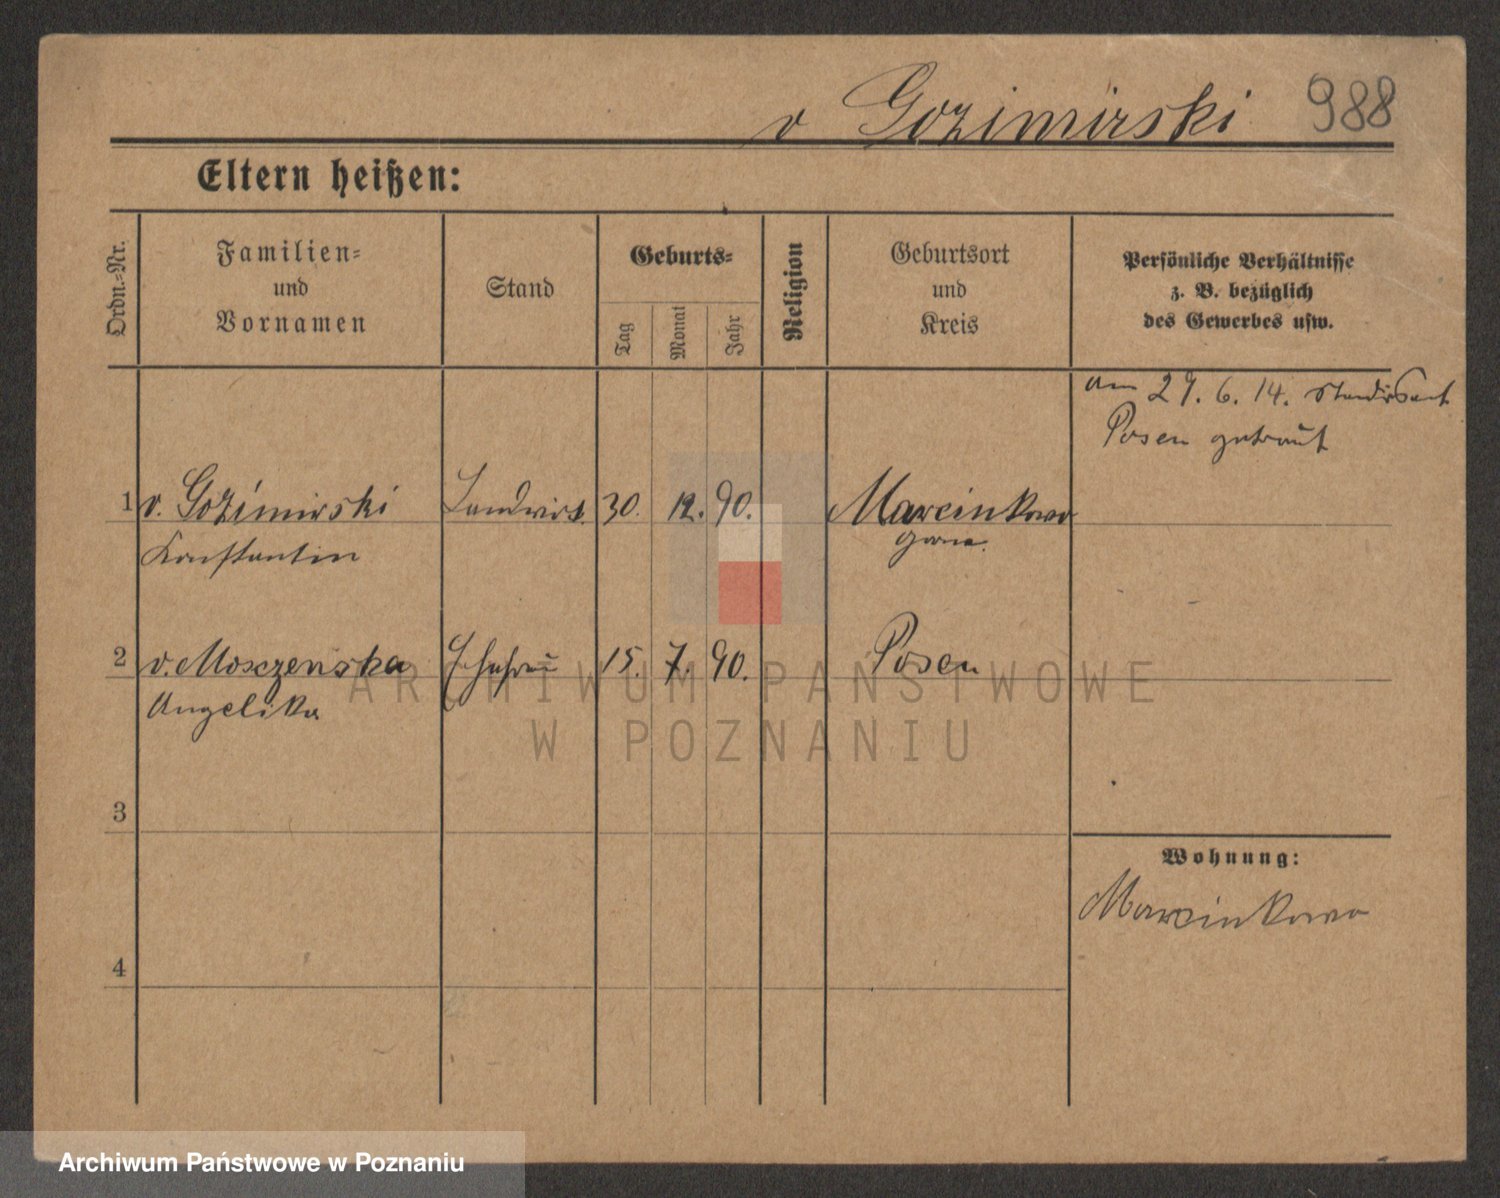 v Gozimirski 988
Eltern heißen:
Ordn.-Nr.
Familien-
und
Vornamen
Stand
Geburts-
Tag
Monat
Jahr
Religion
Geburtsort
und
Kreis
Persönliche Verhältnisse
z. B. bezüglich
des Gewerbes usw.
am 29. 6. 14. Standesamt
Posen getraut
1 v. Gozimirski Landwirt 30. 12. 90. Marcinkowo
Konstantin gorne.
2 v. Moszzenska Ehefrau 15. 7. 90. Posen
Angelika
ARCHIWUM PAŃSTWOWE
W POZNANIU
3
Wohnung:
Marcinkowo
4
Archiwum Państwowe w Poznaniu